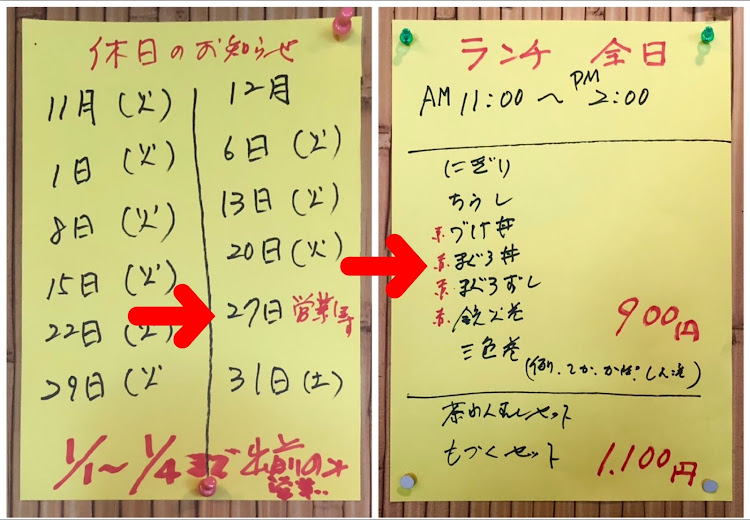 休日のお知らせ
11月(火)
1日(火)
8日(火)
15日(火)
22日(火)
29日(火
12月
6日(火)
13日(火)
20日(火)
27日 営業します
31日(土)
1/1〜1/4まで 出前のみ
営業
ランチ 全日
AM 11:00〜PM 2:00
にぎり
ちらし
づけ丼
まぐろ丼
まぐろずし
鉄火巻
三色巻
900円
茶わんむしセット
もづくセット
1.100円